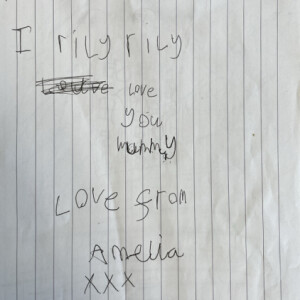 I rily rily
love
you
mummy
Love from
Amelia
xxx